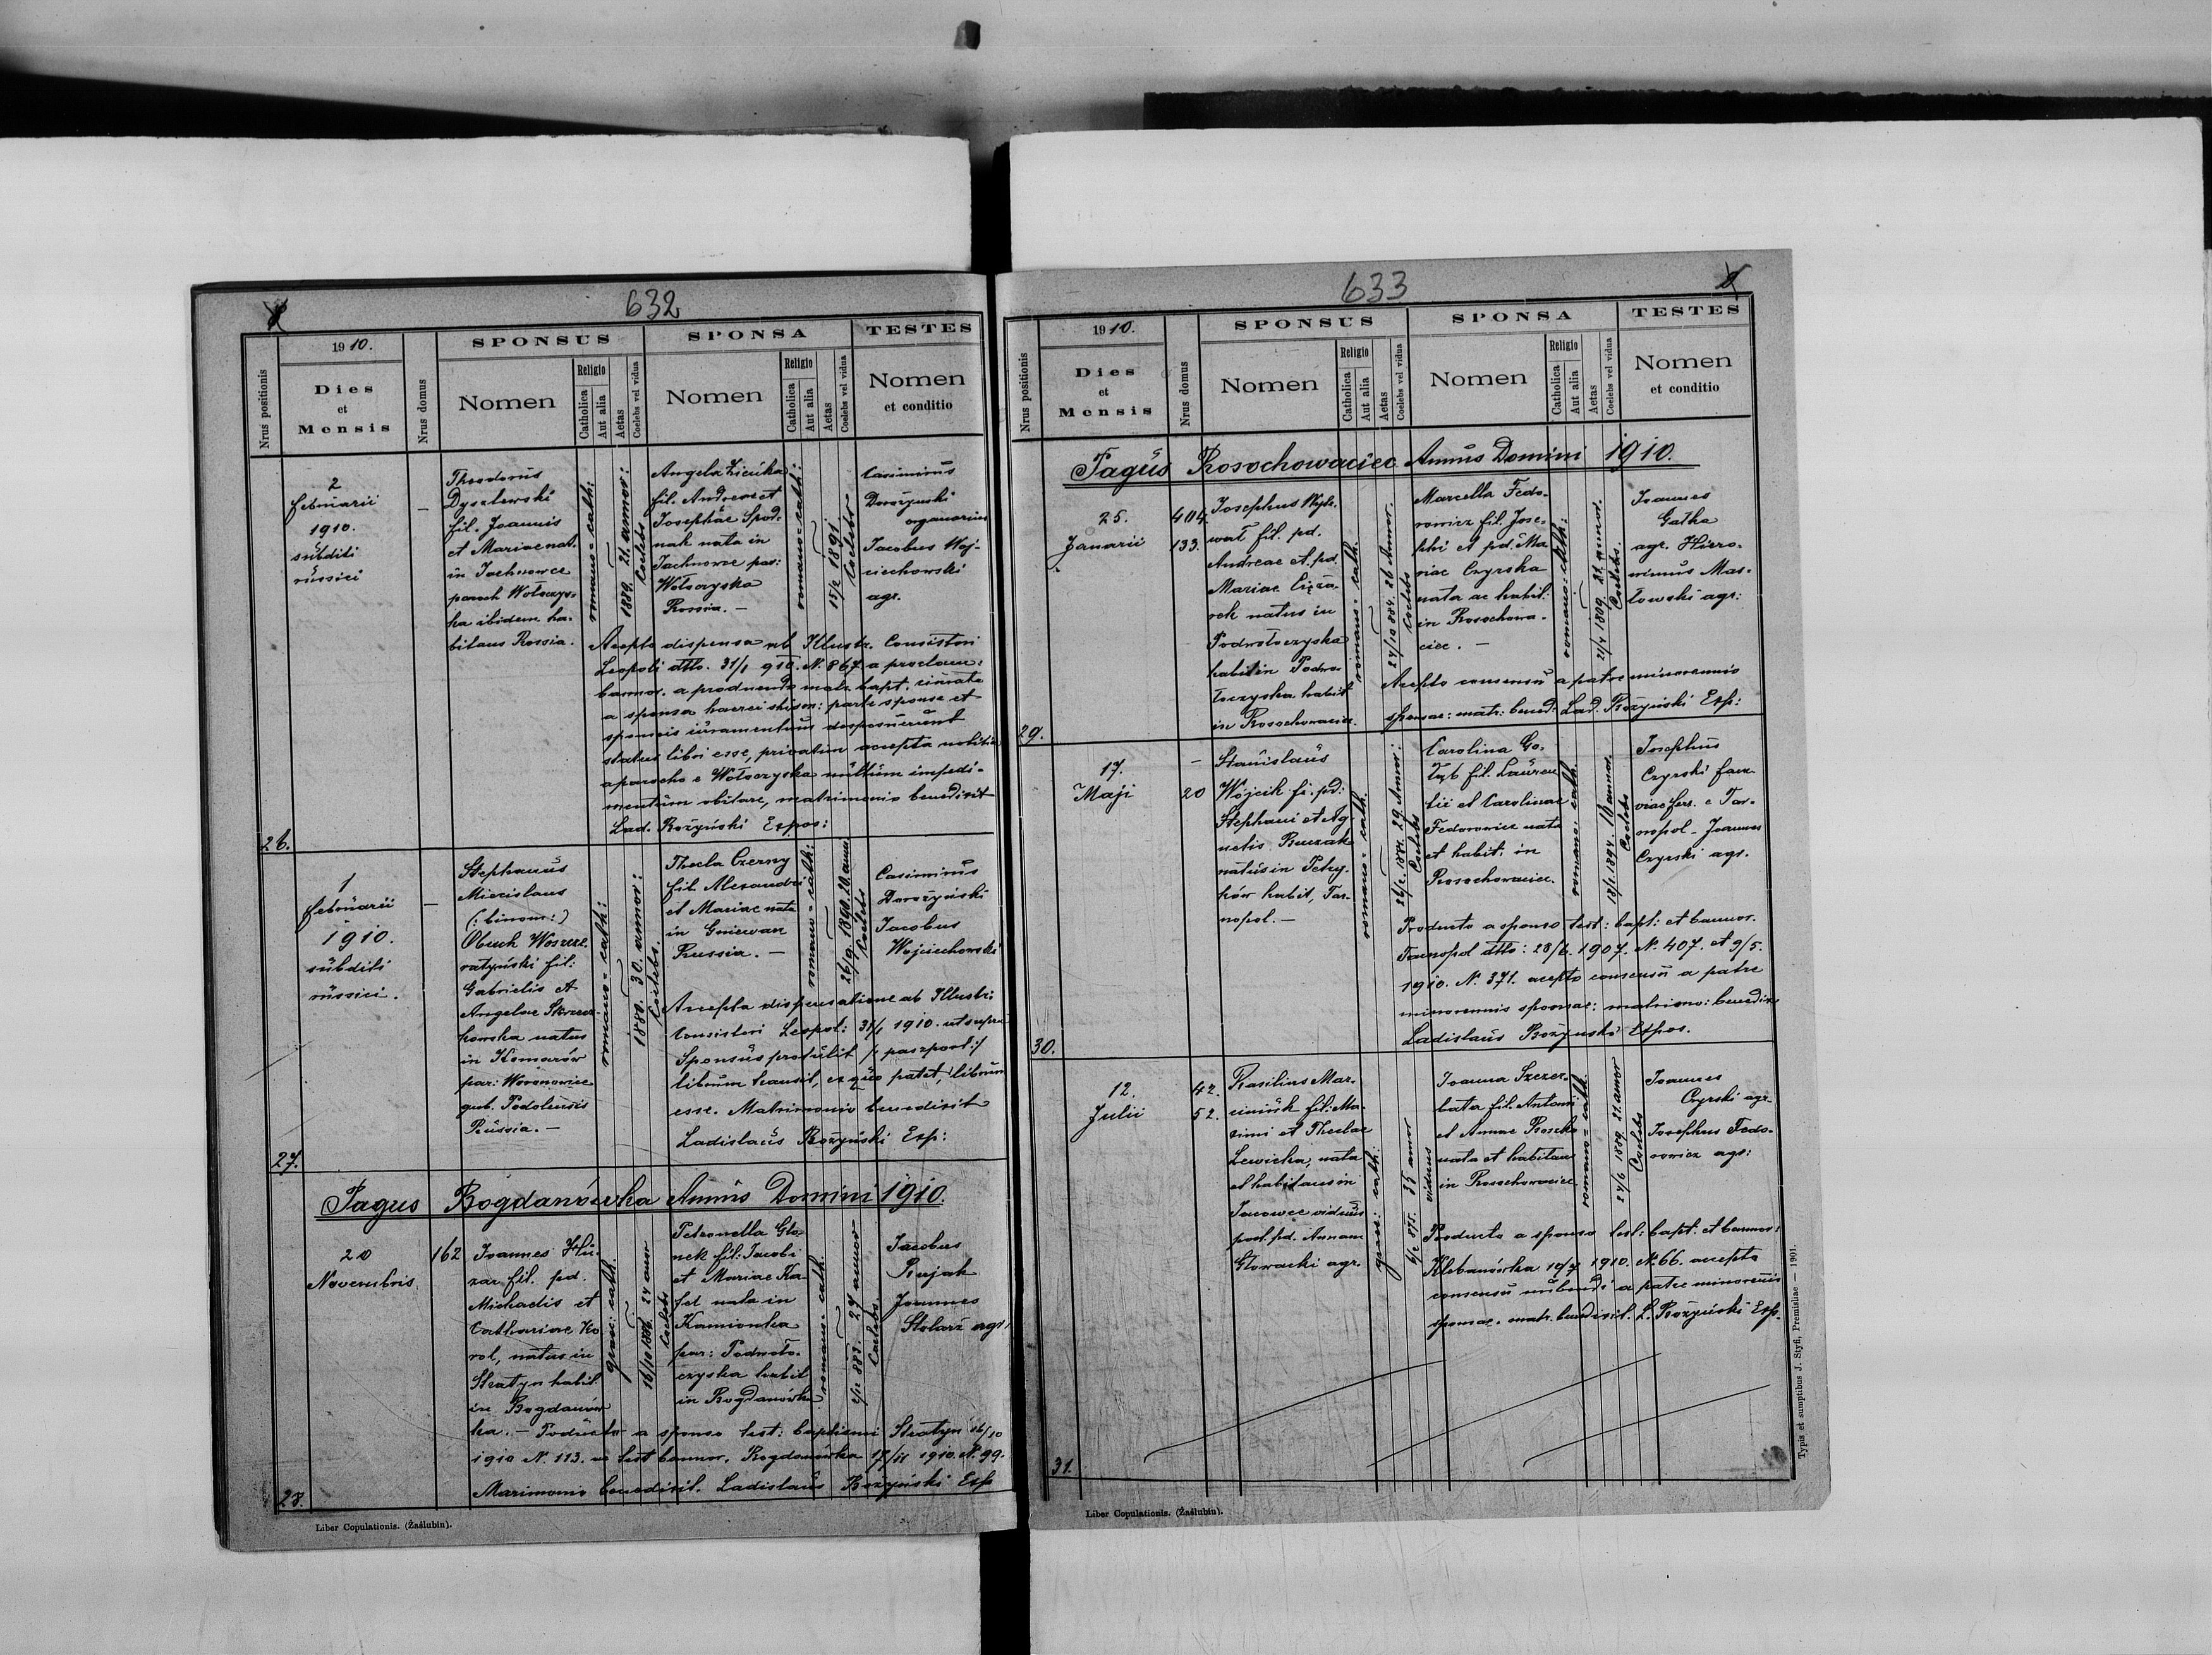 632
1910.
SPONSUS
SPONSA
TESTES
Nrus positionis
Dies
et
Mensis
Nrus domus
Nomen
Religio
Catholica
Aut alia
Aetas
Coelebs vel vidua
Nomen
Religio
Catholica
Aut alia
Aetas
Coelebs vel vidua
Nomen
et conditio
26.
2
Februarii
1910.
subditi
russici
Theodorus
Dyszlewski
fil. Joannis
et Mariae nat.
in Jachnowce
paroch Wołoczys-
ka ibidem ha-
bitans Rossia.
romano-cath:
1889. 21. annor:
Coelebs
fil. Andreae et
Josephae Spod-
nak nata in
Jachnowce par:
Wołoczyska
Rossia. —
romano-cath:
1891
Coelebs
Casimirus
Dorożynski
organarius
Jacobus Woj-
ciechowski
agr.
Accepta dispensa ab Illustr. Consistori
Leopoli dtto. 31/1 910. N. 867. a proclam:
statui libri esse, privatim accepta notitia
a parocho e Wołoczyska nullum impedi-
mentum obstare, matrimonio benedixit
Lad. Bożyński Expos:
27.
1
Februarii
1910.
subditi
russici.
Stephanus
Miecislaus
(: binom:)
Obuch Woszcza-
tyński fil:
Gabrielis et
Angelae
natus
in Komarów
par: Woronowice
gub. Podolensis
Russia. —
romano-cath:
1880. 30. annor:
Coelebs.
Thecla Czerny
fil. Alexandri
et Mariae nata
in Gniewan
Russia. —
romano-cath:
26/9. 1890. 20. annor
Coelebs
Casimirus
Dorożyński
Jacobus
Wojciechowski
Accepta dispensatione ab Illustr:
Consistori Leopol: 31/1 1910. ut supra
Sponsus protulit /: paszport:/
librum transit, ex quo patet, librum
esse. Matrimonio benedixit
Ladislaus Bożyński Exp:
Pagus Bogdanówka Annus Domini 1910.
28.
20
Novembris
162
Joannes Hu-
zar fil. pd.
Michaelis et
Catharinae Ko
rol, natus in
Stratyn habit
in Bogdanów
ka. — Producto a sponso test: baptismi Stratyn 16/10
graec: cath.
16/10 1886. 24 annor
Coelebs
Petronella Glo-
nek fil: Jacobi
et Mariae Ka-
fel nata in
Kamionka
par: Podwoło-
czyska habit
in Bogdanówka
romano-cath.
883. 27 annor
Coelebs.
Jacobus
Joannes
Stolarz agr:
1910 N. 113. test bannor. Bogdanówka 17/11 1910. N. 99.
Marimonio benedixit. Ladislaus Bożyński Exp
Liber Copulationis. (Zaślubin).
633
1910.
SPONSUS
SPONSA
TESTES
Nrus positionis
Dies
et
Mensis
Nrus domus
Nomen
Religio
Catholica
Aut alia
Aetas
Coelebs vel vidua
Nomen
Religio
Catholica
Aut alia
Aetas
Coelebs vel vidua
Nomen
et conditio
Pagus Rosochowaciec Annus Domini 1910.
29.
25.
Januarii
404.
133.
Josephus
fil. pd.
Andreae et pd.
Mariae Ciąża-
rek natus in
Podwołoczyska
habit in Podwo-
łoczyska habit
in Rosochowaciec.
romano-cath.
24/10 884. 26 annor.
Coelebs
Marcella Fedo-
rowicz fil. Jose-
phi et pd. Ma
riae Czyrska
nata ac habit:
in Rosochowa-
ciec. —
romano-cath:
21/4 1889. 21. annor.
Coelebs.
Joannes
Gałka
agr. Hiero-
nimus Mas-
łowski agr:
Accepto consensu a patre minorennis
sponsae: matr: bened: Lad. Bożyński Exp:
30.
17.
Maji
—
20
Stanislaus
Wójcik fi. pd:
Stephani et Ag-
netis
natus in Petry-
ków habit, Tar-
nopol. —
romano-cath.
29. Annor:
Coelebs
Carolina Go-
łąb fil. Lauren
tii et Carolinae
Fedorowicz nata
et habit. in
Rosochowaciec.
romano-cath.
1894. annor.
Coelebs
Josephus
Czyrski fam
viae fers. e Tar-
nopol - Joannes
Czyrski agr.
Producto a sponso test: bapt: et bannor.
Tarnopol dtto: 28/6. 1907. N. 407. et 9/5.
1910. N. 371. accepto consensu a patre
minorennis sponsae: matrimo: benedixit
Ladislaus Bożyński Expos.
31.
12.
Julii
42.
52.
Basilius Mar-
ciniuk fil: Ma-
ximi et Theclae
Lewicka, nata
et habitans in
Jacowce viduus
post pd. Annam
Głowacki agr.
graec: cath:
875. 35 annor
viduus
Joanna Szczer-
bata fil. Antoni
et Annae Roszko
nata et habitans
in Rosochowaciec
romano-cath:
24/6 1889 21. annor
Coelebs
Joannes
Czyrski agr.
Josephus Fedo-
rowicz agr:
Producto a sponso test: bapt: et bannor:
Klebanówka 10/7 1910. N. 66. accepto
consensu nubendi a patre minorennis
sponsae. matr. benedixit. L. Bożyński Exp.
Liber Copulationis. (Zaślubin).
Typis et sumptibus J. Styfi, Premisliae — 1901.